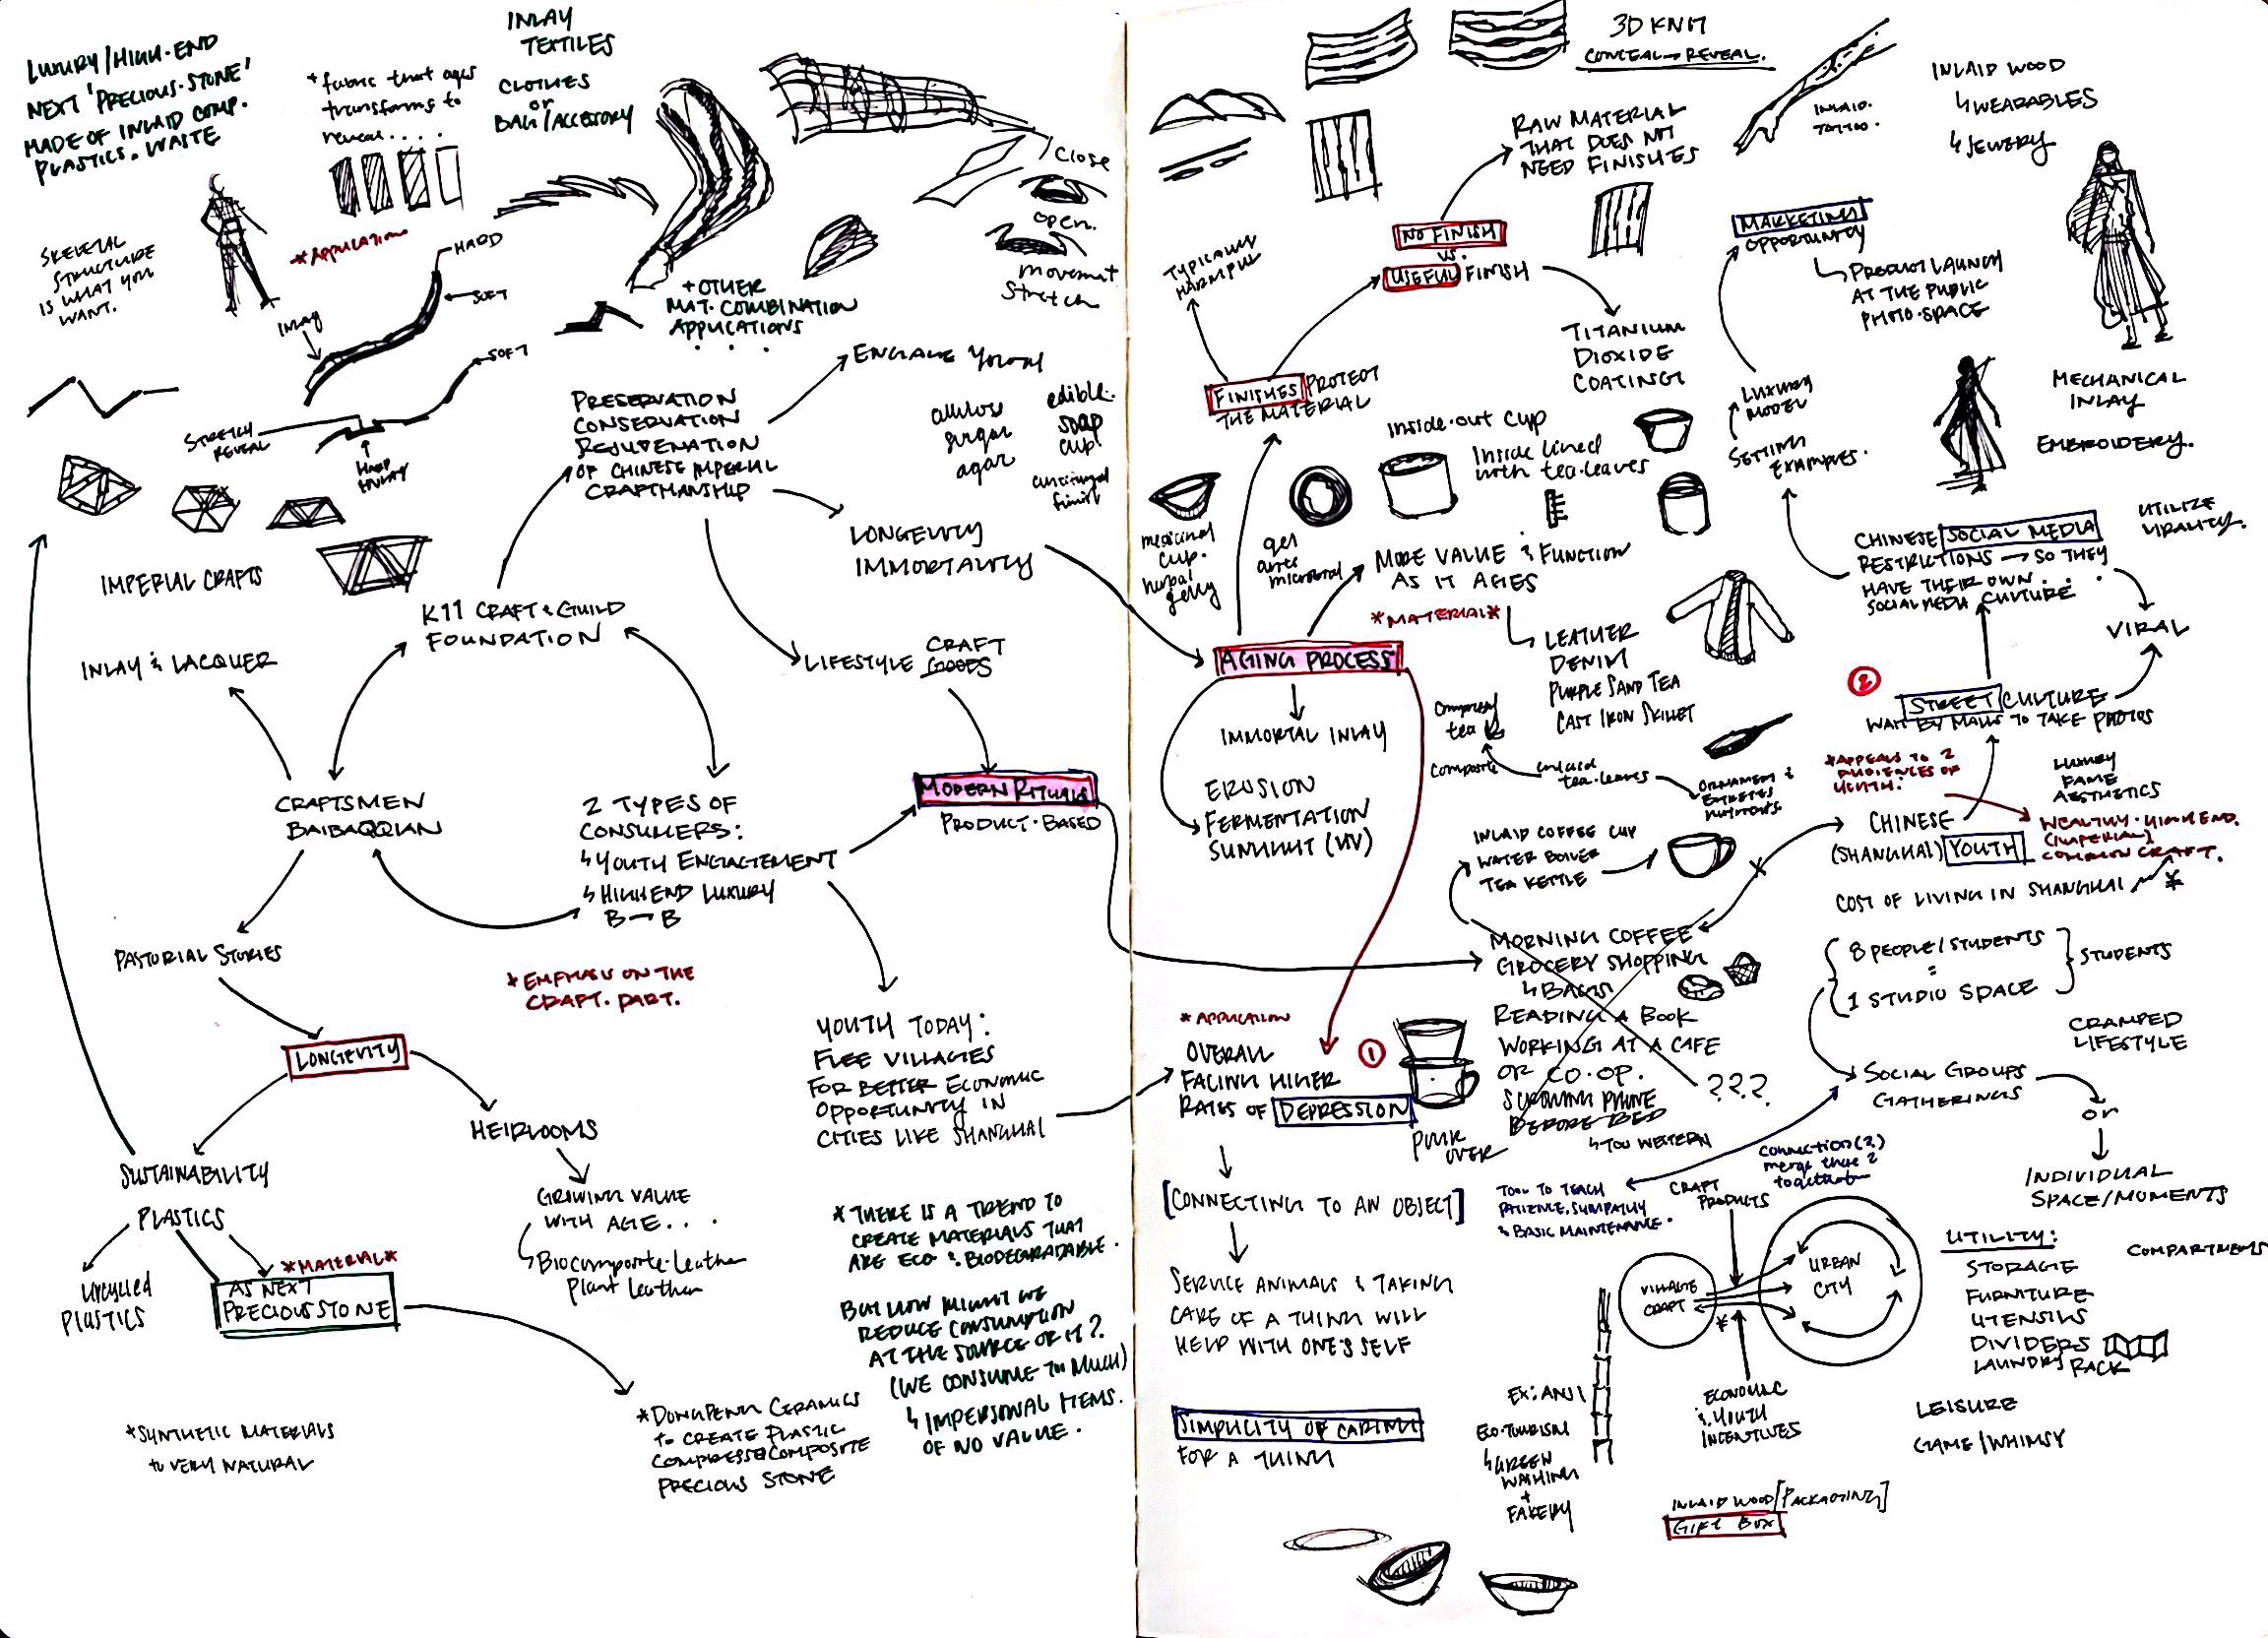 LUXURY/HIGH-END
NEXT 'PRECIOUS-STONE'
MADE OF INLAID COMP.
PLASTICS. WASTE
*fabric that ages
transforms to
reveal....
*APPLICATION
INLAY
TEXTILES
CLOTHES
or
BAG/ACCESSORY
SKELETAL
STRUCTURE
IS WHAT YOU
WANT.
HARD
SOFT
INLAY
SOFT
STRETCH
REVEAL
HARD
INLAY
close
open.
movement
stretch
+OTHER
MAT. COMBINATION
APPLICATIONS
. . .
PRESERVATION
CONSERVATION
REJUVENATION
OF CHINESE IMPERIAL
CRAFTMANSHIP
ENGAGE YOUTH
sugar
agar
edible.
soap
cup.
finish
LONGEVITY
IMMORTALITY
IMPERIAL CRAFTS
K11 CRAFT & GUILD
FOUNDATION
INLAY & LACQUER
LIFESTYLE CRAFT
GOODS
CRAFTSMEN
BAIBAQQIAN
2 TYPES OF
CONSUMERS:
↳ YOUTH ENGAGEMENT
↳ HIGH END LUXURY
B→B
MODERN RITUALS
PRODUCT-BASED
*EMPHASIS ON THE
CRAFT. PART.
PASTORIAL STORIES
LONGEVITY
HEIRLOOMS
GROWING VALUE
WITH AGE...
↳ Biocomposite-Leather
Plant Leather
YOUTH TODAY:
FLEE VILLAGES
FOR BETTER ECONOMIC
OPPORTUNITY IN
CITIES LIKE SHANGHAI
SUSTAINABILITY
PLASTICS
Upcycled
PLASTICS
*MATERIAL*
AS NEXT
PRECIOUS STONE
*THERE IS A TREND TO
CREATE MATERIALS THAT
ARE ECO & BIODEGRADABLE.
BUT HOW MIGHT WE
REDUCE CONSUMPTION
AT THE SOURCE OF IT?
(WE CONSUME TOO MUCH)
↳ IMPERSONAL ITEMS.
OF NO VALUE.
*DONGPENG CERAMICS
to CREATE PLASTIC
COMPRESSED COMPOSITE
PRECIOUS STONE
*SYNTHETIC MATERIALS
to VERY NATURAL
3D KNIT
CONCEAL→REVEAL.
RAW MATERIAL
THAT DOES NOT
NEED FINISHES
INLAID.
TATTOO.
INLAID WOOD
↳ WEARABLES
↳ JEWERY
TYPICALLY
HARMFUL
NO FINISH
vs.
USEFUL FINISH
MARKETING
OPPORTUNITY
↳ PRODUCT LAUNCH
AT THE PUBLIC
PHOTO-SPACE
TITANIUM
DIOXIDE
COATING
FINISHES PROTECT
THE MATERIAL
LUXURY
MODEL
SETTING
EXAMPLES.
MECHANICAL
INLAY
EMBROIDERY.
Inside-out cup
Inside lined
with tea-leaves
medicinal
cup.
herbal
jelly
gel
MORE VALUE & FUNCTION
AS IT AGES
*MATERIAL*
CHINESE SOCIAL MEDIA
RESTRICTIONS → SO THEY
HAVE THEIR OWN....
SOCIAL MEDIA CULTURE
UTILIZE
VIRALITY.
VIRAL
AGING PROCESS
LEATHER
DENIM
PURPLE SAND TEA
CAST IRON SKILLET
IMMORTAL INLAY
EROSION
FERMENTATION
SUNLIGHT (UV)
Compressed
tea
Composite
inlaid
tea-leaves
ORNAMENT &
NUTRIENTS
INLAID COFFEE CUP
WATER BOILER
TEA KETTLE
2
STREET CULTURE
WAIT BY MALLS TO TAKE PHOTOS
*APPEALS TO 2
AUDIENCES OF
YOUTH.
LUXURY
FAME
AESTHETICS
CHINESE
(SHANGHAI) YOUTH
WEALTHY-HIGH END.
(IMPERIAL)
COMMON CRAFT.
COST OF LIVING IN SHANGHAI ¥
MORNING COFFEE
GROCERY SHOPPING
↳ BAGS
READING A BOOK
WORKING AT A CAFE
OR CO-OP.
SCROLLING PHONE
BEFORE BED
↳ TOO WESTERN
???
8 PEOPLE/STUDENTS
=
1 STUDIO SPACE
STUDENTS
CRAMPED
LIFESTYLE
SOCIAL GROUPS
GATHERINGS
or
INDIVIDUAL
SPACE/MOMENTS
*APPLICATION
OVERALL
FACING HIGHER
RATES OF DEPRESSION
1
POUR
OVER
[CONNECTING TO AN OBJECT]
TOOL TO TEACH
PATIENCE, SYMPATHY
& BASIC MAINTENANCE.
connection(?)
merge these 2
together
CRAFT
PRODUCTS
SERVICE ANIMALS & TAKING
CARE OF A THING WILL
HELP WITH ONE'S SELF
VILLAGE
CRAFT
¥
URBAN
CITY
UTILITY:
STORAGE
FURNITURE
UTENSILS
DIVIDERS
LAUNDRY RACK
COMPARTMENTS
SIMPLICITY OF CARING
FOR A THING
EX: ANJI
ECO-TOURISM
↳ GREEN
WASHING
+
FAKERY
ECONOMIC
& YOUTH
INCENTIVES
LEISURE
GAME/WHIMSY
INLAID WOOD [PACKAGING]
GIFT BOX